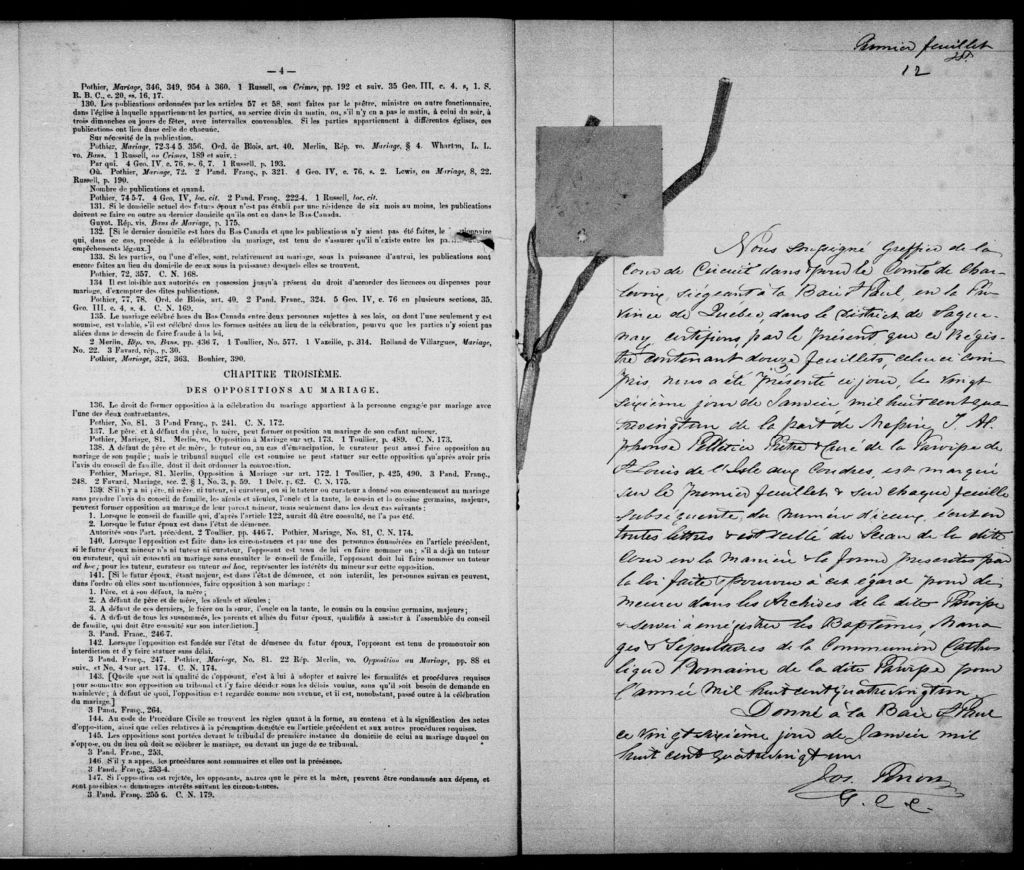 — 4 —
Pothier, Mariage, 346, 349, 954 à 360. 1 Russell, on Crimes, pp. 192 et suiv. 35 Geo. III, c. 4. s, 1. S.
R. B. C., c. 20, ss. 16, 17.
130. Les publications ordonnées par les articles 57 et 58, sont faites par le prêtre, ministre ou autre fonctionnaire,
dans l'église à laquelle appartiennent les parties, au service divin du matin, ou, s'il n'y en a pas le matin, à celui du soir, à
trois dimanches ou jours de fêtes, avec intervalles convenables. Si les parties appartiennent à différentes églises, ces
publications ont lieu dans celle de chacune.
Sur nécessité de la publication.
Pothier, Mariage, 72-3-4 5. 356. Ord. de Blois, art. 40. Merlin, Rép. vo. Mariage, § 4. Wharton, L. L.
vo. Bans. 1 Russell, on Crimes, 189 et suiv. :
Par qui. 4 Geo. IV, c. 76, s. 6, 7. 1 Russell, p. 193.
Où. Pothier, Mariage, 72. 2 Pand. Franç., p. 321. 4 Geo. IV, c. 76, s. 2. Lewis, on Mariage, 8, 22.
Russell, p. 190.
Nombre de publications et quand.
Pothier, 74 5-7. 4 Geo, IV, loc. cit. 2 Pand. Franç., 222-4. 1 Russell, loc. cit.
131. Si le domicile actuel des futurs époux n'est pas établi par une résidence de six mois au moins, les publications
doivent se faire en outre au dernier domicile qu'ils ont eu dans le Bas-Canada.
Guyot. Rép. vis. Bans de Mariage, p. 175.
132. [Si le dernier domicile est hors du Bas Canada et que les publications n'y aient pas été faites, le
qui, dans ce cas, procède à la célébration du mariage, est tenu de s'assurer qu'il n'existe entre les
empêchements légaux.]
133. Si les parties, ou l'une d'elles, sont, relativement au mariage, sous la puissance d'autrui, les publications sont
encore faites au lieu du domicile de ceux sous la puissance desquels elles se trouvent.
Pothier, 72, 357. C. N. 168.
134 Il est loisible aux autorités en possession jusqu'à présent du droit d'accorder des licences ou dispenses pour
mariage, d'exempter des dites publications.
Pothier, 77, 78. Ord. de Blois, art. 40. 2 Pand. Franç., 324. 5 Geo. IV, c. 76 en plusieurs sections, 35.
Geo. III. c. 4, s. 4. C. N. 169.
135. Le mariage célébré hors du Bas-Canada entre deux personnes sujettes à ses lois, ou dont l'une seulement y est
soumise, est valable, s'il est célébré dans les formes usitées au lieu de la célébration, pourvu que les parties n'y soient pas
aliées dans le dessein de faire fraude à la loi,
2 Merlin, Rép. vo. Bans. pp. 436 7. 1 Toullier, No. 577. 1 Vazeille, p. 314. Rolland de Villargues, Mariage,
No. 22. 3 Favard, rép., p. 30.
Pothier, Mariage, 327, 363. Bouhier, 390.
CHAPITRE TROISIÈME.
DES OPPOSITIONS AU MARIAGE.
136. Le droit de former opposition à la célébration du mariage appartient à la personne engagée par mariage avec
l'une des deux contractantes.
Pothier, No. 81. 3 Pand Franç., p. 241. C. N. 172.
137. Le père, et à défaut du père, la mère, peut former opposition au mariage de son enfant mineur.
Pothier, Mariage, 81. Merlin, vo. Opposition à Mariage sur art. 173. 1 Toullier, p. 489. C. N. 173.
138. A défaut de père et de mère, le tuteur ou, au cas d'émancipation, le curateur peut aussi faire opposition au
mariage de son pupille ; mais le tribunal auquel elle est soumise ne peut statuer sur cette opposition qu'après avoir pris
l'avis du conseil de famille, dont il doit ordonner la convocation.
Pothier, Mariage, 81. Merlin, Opposition à Mariage sur art. 172. 1 Toullier, p. 425, 490. 3 Pand. Franç.,
248. 2 Favard, Mariage, sec. 2, § 1, No. 3, p. 59. 1 Delv. p. 62. C. N. 175.
139. S'il n'y a ni père, ni mère, ni tuteur, ni curateur, ou si le tuteur ou curateur a donné son consentement au mariage
sans prendre l'avis du conseil de famille, les aïeuls et aïeules, l'oncle et la tante, le cousin et la cousine germains, majeurs,
peuvent former opposition au mariage de leur parent mineur, mais seulement dans les deux cas suivants :
1. Lorsque le conseil de famille qui, d'après l'article 122, aurait dû être consulté, ne l'a pas été.
2. Lorsque le futur époux est dans l'état de démence.
Autorités sous l'art. précédent, 2 Toullier, pp. 446 7. Pothier, Mariage, No. 81, C. N. 174.
140. Lorsque l'opposition est faite dans les circonstances et par une des personnes énumérées en l'article précédent,
si le futur époux mineur n'a ni tuteur ni curateur, l'opposant est tenu de lui en faire nommer un ; s'il a déjà un tuteur
ou curateur, qui ait consenti au mariage sans consulter le conseil de famille, l'opposant doit lui faire nommer un tuteur
ad hoc ; pour les tuteur, curateur ou tuteur ad hoc, représenter les intérêts du mineur sur cette opposition.
141. [Si le futur époux, étant majeur, est dans l'état de démence, et non interdit, les personnes suivantes peuvent,
dans l'ordre où elles sont mentionnées, faire opposition à son mariage :
1. Père, et à son défaut, la mère ;
2. A défaut de père et de mère, les aïeuls et aïeules ;
3. A défaut de ces derniers, le frère ou la sœur, l'oncle ou la tante, le cousin ou la cousine germains, majeurs ;
4. A défaut de tous les susnommés, les parents et alliés du futur époux, qualifiés à assister à l'assemblée du conseil
de famille, qui doit être consulté sur son interdiction.]
3. Pand. Franc. 246-7.
142. Lorsque l'opposition est fondée sur l'état de démence du futur époux, l'opposant est tenu de promouvoir son
interdiction et d'y faire statuer sans délai.
3 Pand. Franç., 247. Pothier, Mariage, No. 81. 22 Rép. Merlin, vo. Opposition au Mariage, pp. 88 et
suiv., et No. 4 sur art. 174. C. N. 174.
143. [Quelle que soit la qualité de l'opposant, c'est à lui à adopter et suivre les formalités et procédures requises
pour soumettre son opposition au tribunal et l'y faire décider sous les délais voulus, sans qu'il soit besoin de demande en
mainlevée ; à défaut de quoi, l'opposition est regardée comme non avenue, et il est, nonobstant, passé outre à la célébration
du mariage.]
3 Pand. Franç., 264.
144. Au code de Procédure Civile se trouvent les règles quant à la forme, au contenu et à la signification des actes
d'opposition, ainsi que celles relatives à la péremption décrétée en l'article précédent et aux autres procédures requises.
145. Les oppositions sont portées devant le tribunal de première instance du domicile de celui au mariage duquel on
s'oppose, ou du lieu où doit se célébrer le mariage, ou devant un juge de ce tribunal.
3 Pand. Franc., 253.
146 S'il y a appel, les procédures sont sommaires et elles ont la préséance.
3 Pand. Franç., 253-4.
147. Si l'opposition est rejetée, les opposants, autres que le père et la mère, peuvent être condamnés aux dépens, et
sont passibles de dommages intérêts suivant les circonstances.
3 Pand. Franç. 255 6. C. N. 179.
Premier feuillet
12
Nous soussigné Greffier de la
Cour de Circuit dans & pour le Comté de Char-
levoix, siégeant à la Baie St Paul, en la Pro
vince de Quebec, dans le district de Sague-
nay, certifions par le présent, que ce Régis-
tre contenant douze feuillets, celui ci com
pris, nous a été présenté ce jour, le vingt
sixième jour de Janvier mil huit cent qua
trevingt un de la part de Messire J. Al
phonse Pelletier Prêtre & Curé de la Paroisse de
St Louis de l'Isle aux Coudres, est marqué
sur le premier feuillet & sur chaque feuille
subséquente, du numéro d'iceux, écrit en
toutes lettres & est scellé du Sceau de la dite
Cour en la manière & la forme prescrites par
la loi faite & pourvue à cet égard pour de
meurer dans les Archives de la dite Paroisse
& servir à enrégistrer les Baptêmes, Maria
ges & Sépultures de la Communion Catho
lique Romaine de la dite Paroisse pour
l'année mil huit cent quatre vingt un
Donné à la Baie St Paul
ce vingt sixième jour de Janvier mil
huit cent quatrevingt un
Jos. Perron
G. C. C.